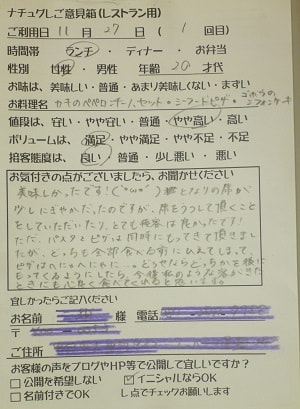 ナチュグしご意見箱(レストラン用)
ご利用日 11月 27日 ( 1 回目)
時間帯 ランチ ・ ディナー ・ お弁当
性別 女性 ・ 男性 年齢 20 才代
お味は、美味しい・普通・あまり美味しくない・まずい
お料理名 カキのペペロンチーノ、セット・シーフードピザ・ゴボウの
値段は、安い・やや安い・普通・やや高い・高い
ボリュームは、満足・やや満足・やや不足・不足
接客態度は、良い・普通・少し悪い・悪い
お気付きの点がございましたら、お聞かせください
美味しかったです!
少しにぎやかだったのですが、席をうつして頂くこと
をしていただいたり、とても接客は良かったです!
ただ、パスタとピザは同時にもってきて頂きまし
たが、どっちも全部食べる前にひえてしまって、
ピザはへにゃへにゃに…。どちらかを後に
もってくるようにしたら、今後私のような客がきた
ときにも心良く食べてくれると思います。
宜しかったらご記入ください
お名前 様 電話
〒
ご住所
お客様の声をブログやHP等で公開して宜しいですか?
□公開を希望しない ☑イニシャルならOK
□名前付きでOK し点でチェックお願いします